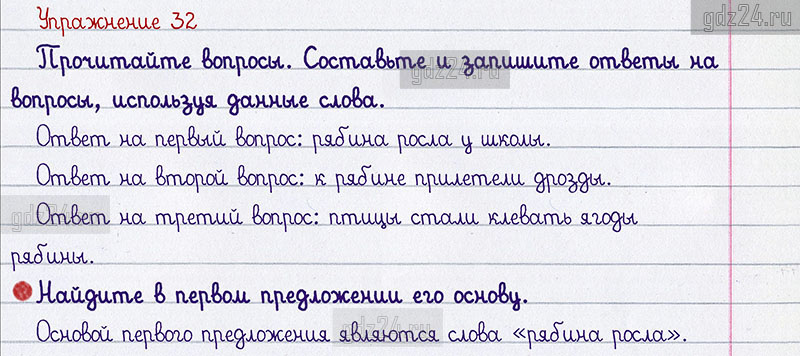 Упражнение 32
gdz24.ru
Прочитайте вопросы. Составьте и запишите ответы на
gdz24.ru
вопросы, используя данные слова.
Ответ на первый вопрос: рябина росла у школы.
Ответ на второй вопрос: к рябине прилетели дрозды.
gdz24.ru
Ответ на третий вопрос: птицы стали клевать ягоды
рябины.
Найдите в первом предложении его основу.
gdz24.ru
Основой первого предложения являются слова «рябина росла».